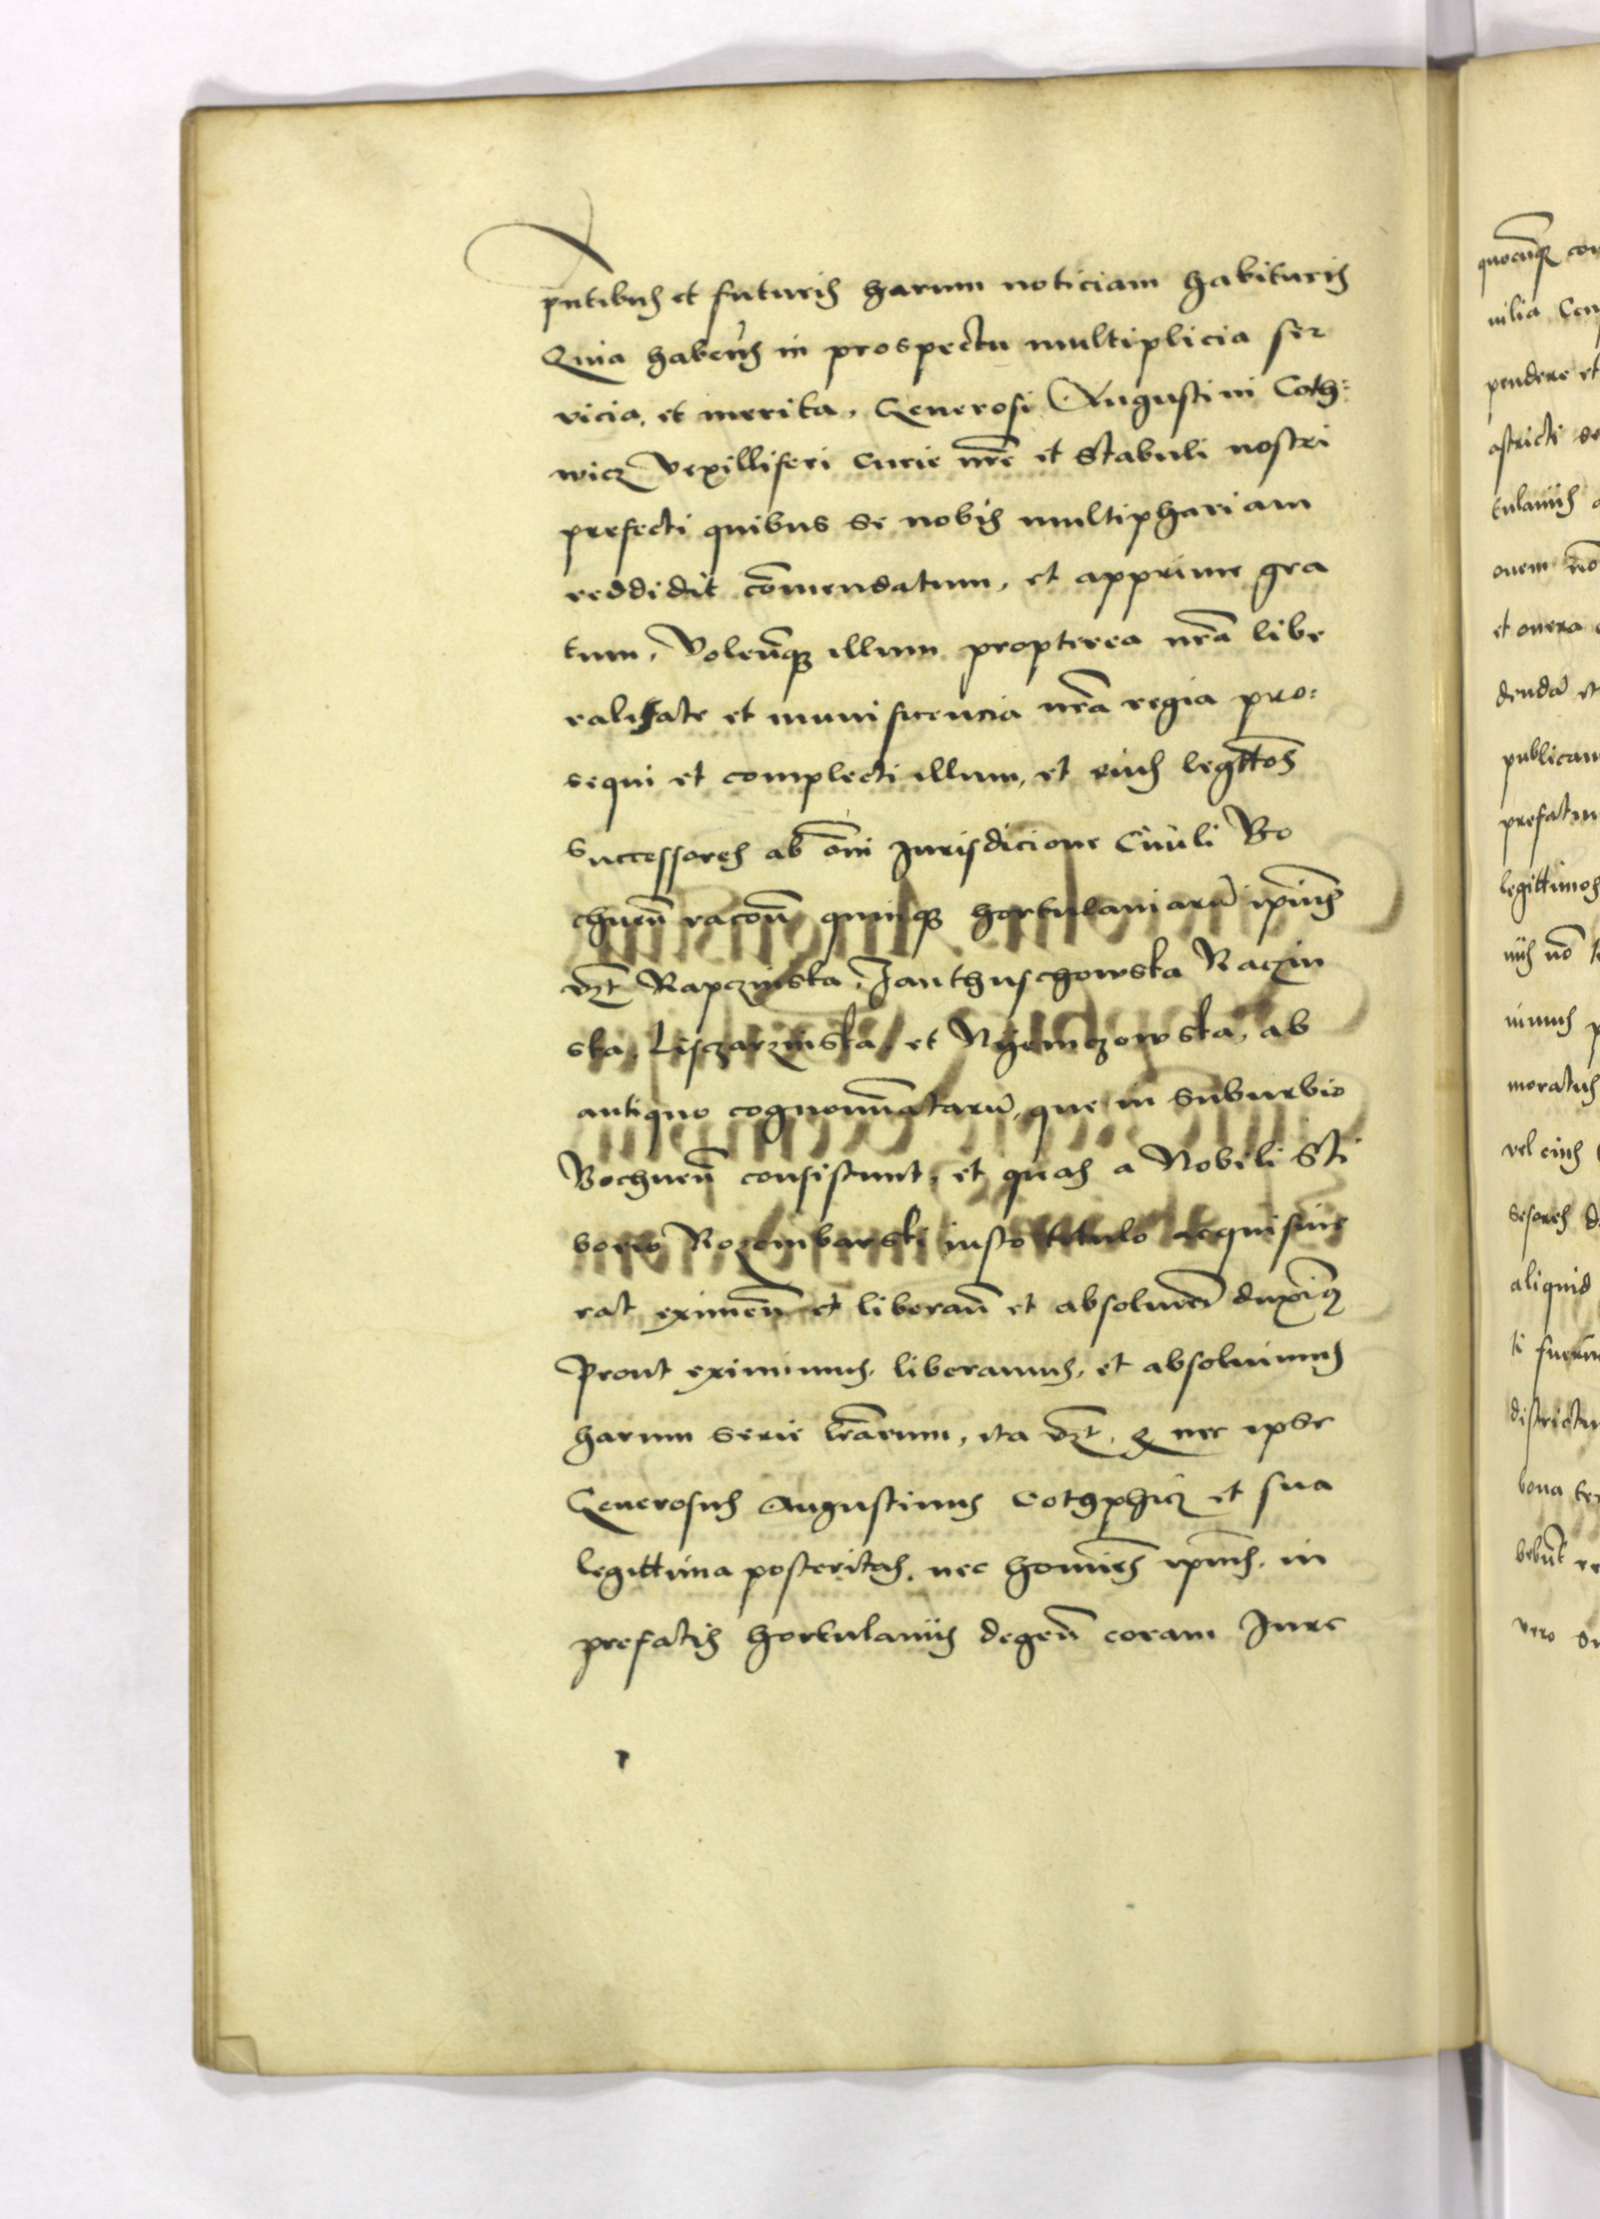 pntibus et futuris harum noticiam habituris
Quia haben̄s in prospectu multiplicia ser
vicia, et merita, Generosi Augustini Coth:
wicz Vexilliferi Curie nr̄e et Stabuli nostri
prefecti quibus se nobis multiphariam
reddidit com̄endatum, et apprime gra
tum, Volen̄que illum propterea nr̄a libe
ralitate et munificencia nr̄a regia pro:
sequi et complecti illum, et eius legittōs
Successores ab om̄i Jurisdicione Ciuili Bo
chnen̄ racōn̄ quinque hortulaniarū ip̄ius
vz̄t Rapczinska, Janthuschowska Raczin
ska, Lisczarzinska, et Nyemczowska, ab
antiquo cognomn̄atarū, que in Suburbio
Bochnen̄ consistunt, et quas a Nobili Sti
borio Rozembarski iusto titulo acquisiue
rat eximen̄ et liberan̄ et absoluen̄ duxim̄us
Prout eximimus, liberamus, et absoluimus
harum serie lr̄arum, ita vz̄t, q nec ipse
Generosus Augustinus Cothphicz et sua
legittima posteritas, nec homin̄es ip̄ius, in
prefatis hortulaniis degen̄ coram Jure
quocūque
uilia
pendere et
astricti
tulaniis
onem nō
et onera
dendā et
publicam
legittimos
nis nō
moratus
vel eius
aliquid
bona
vero